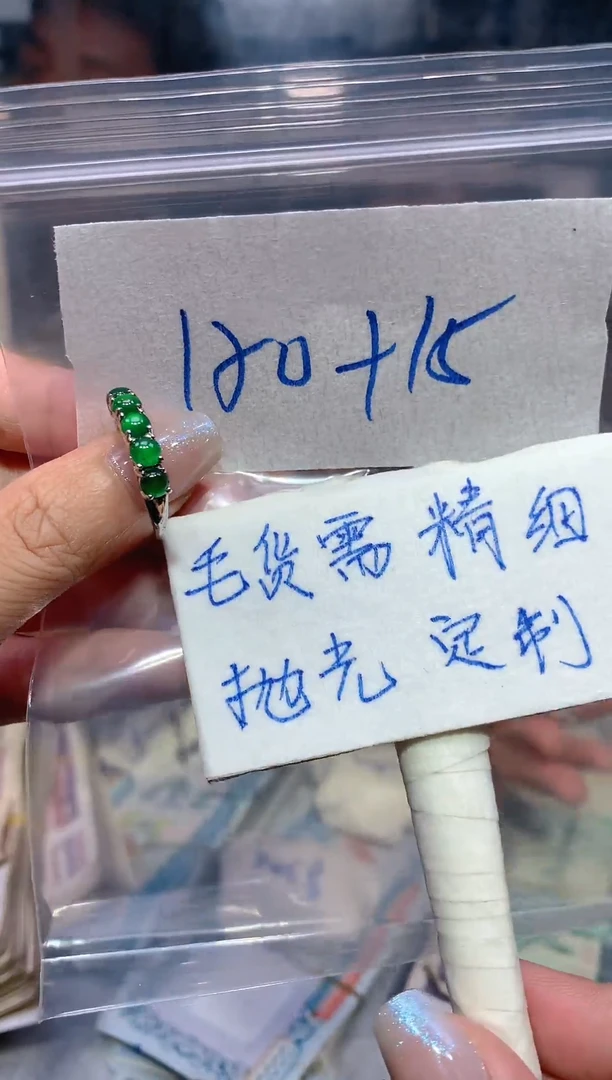 120+15
毛货需精细
抛光定制